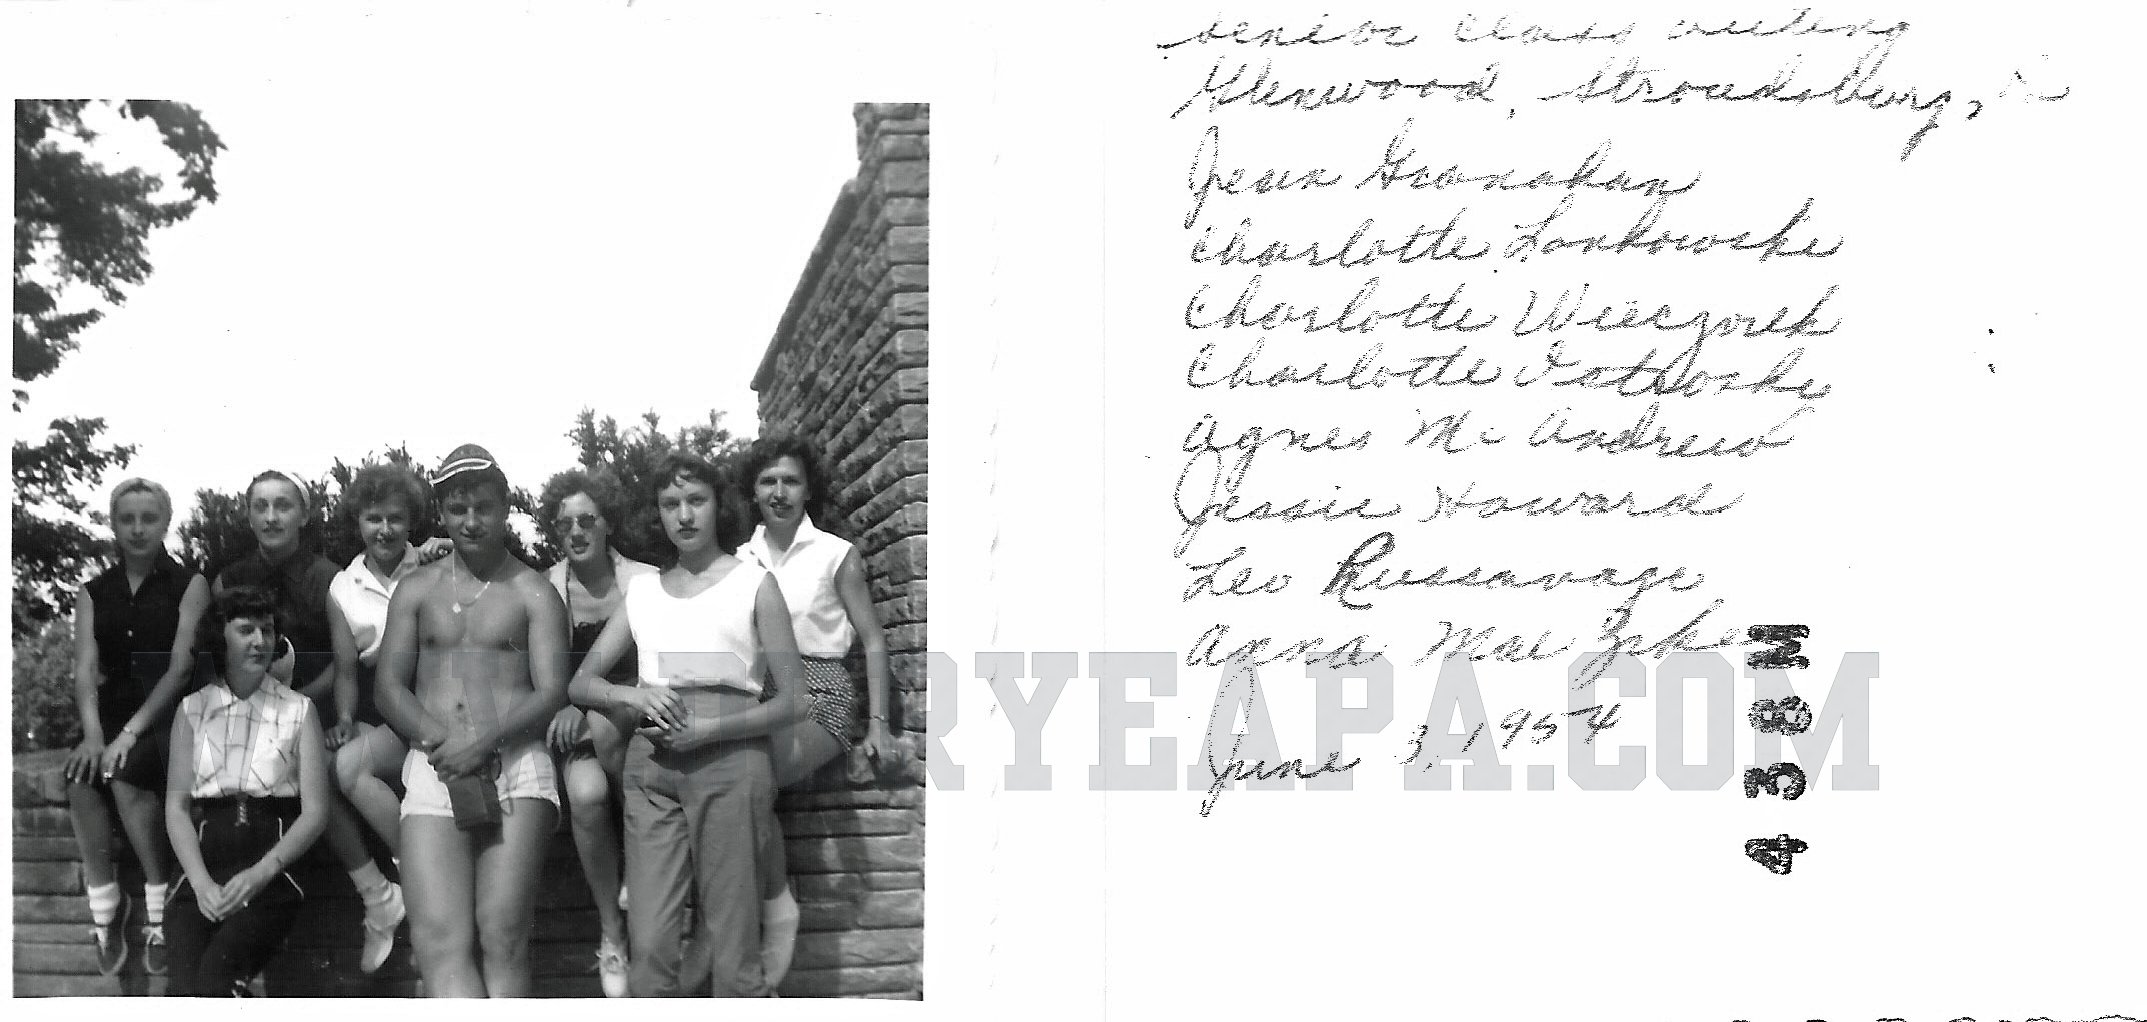 Senior Class outing
Glenwood, Stroudsburg, Pa
Jean Granahan
Charlotte Lonkowski
Charlotte Wieczorek
Charlotte
Agnes Mc Andrew
Jessie Howard
Leo Russavage
Anna Mae
June 3, 1954
438M
WWW.DURYEAPA.COM